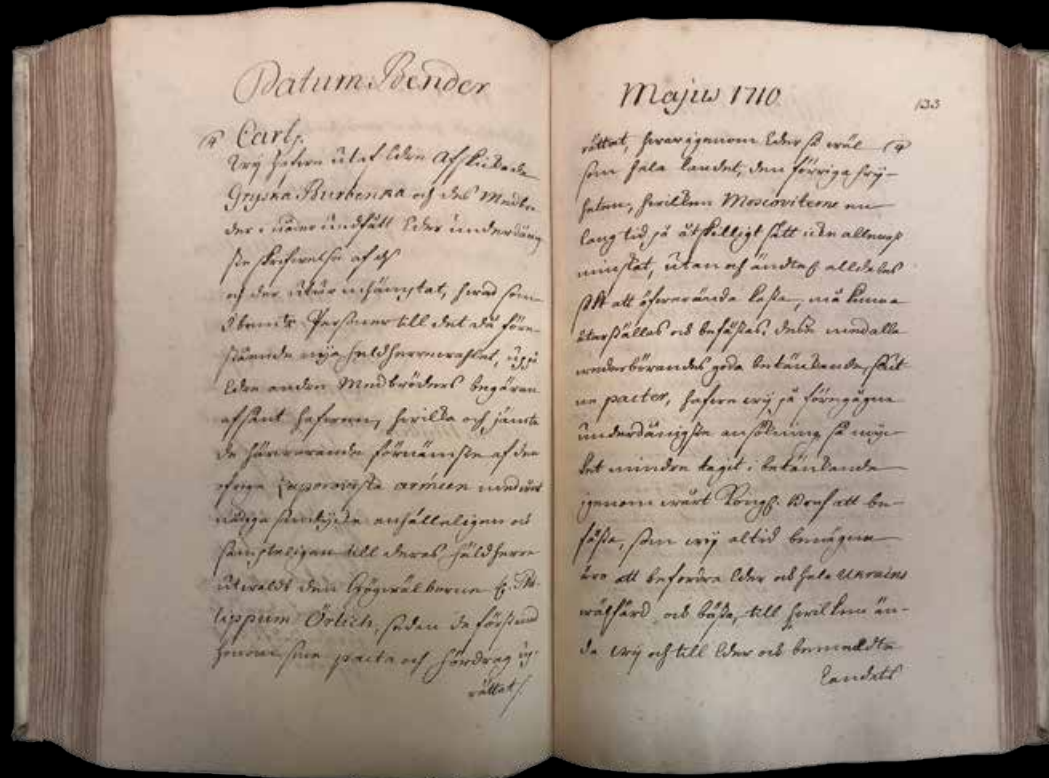 Datum Bender
Carl
Wÿ hafwe utaf Eder Afskickade
Gryska Burbenka och des Medbrö-
der undfått Eder underdånig-
ste skrifwelse af
och der utur inhämptat, hwad som
Persohner till det då före-
stående nya fältherrewahlet, uppå
Eder andre Medbröders begäran
afsänt hafwen, hwilka och jämte
de härwarande förnämste af den
öfrige Zaporowiska armeen med wårt
nådige samtycke enhälleligen och
sampteligen till deras fältherre
utwaldt den Högwälborne H. Phi-
lippum Örlich, sedan de först med
honom sine pacta och fördrag up-
rättat
Majus 1710
133
rättat, hwarigenom Eder så wäl
som hela landet, den förriga frÿ-
heten, hwilken Moscoviterne en
lång tid på åtskilligt sätt icke allenast
minskat, utan och ändtel. alldeles
sökt att öfwerända kasta, må kunna
återställas och befästas. Desse med alla
wederbörandes goda betänkande slut-
ne pacter, hafwe wÿ på föregågne
underdånigste ansökning så mÿc-
ket mindre tagit i betänkande
igenom wårt Kongl. att be-
fästa, som wÿ altid benägne
äre att befordra Eder och hela Ukrains
wälfärd och bästa, till hwilken än-
da wÿ och till Eder och bemeldte
Landets